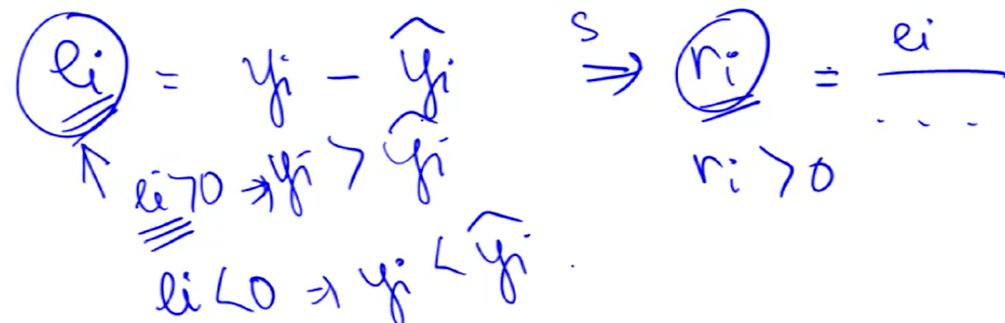 ei = yi − ŷi ⇒ˢ ri = ei / . . .
ei > 0 ⇒ yi > ŷi ri > 0
ei < 0 ⇒ yi < ŷi .